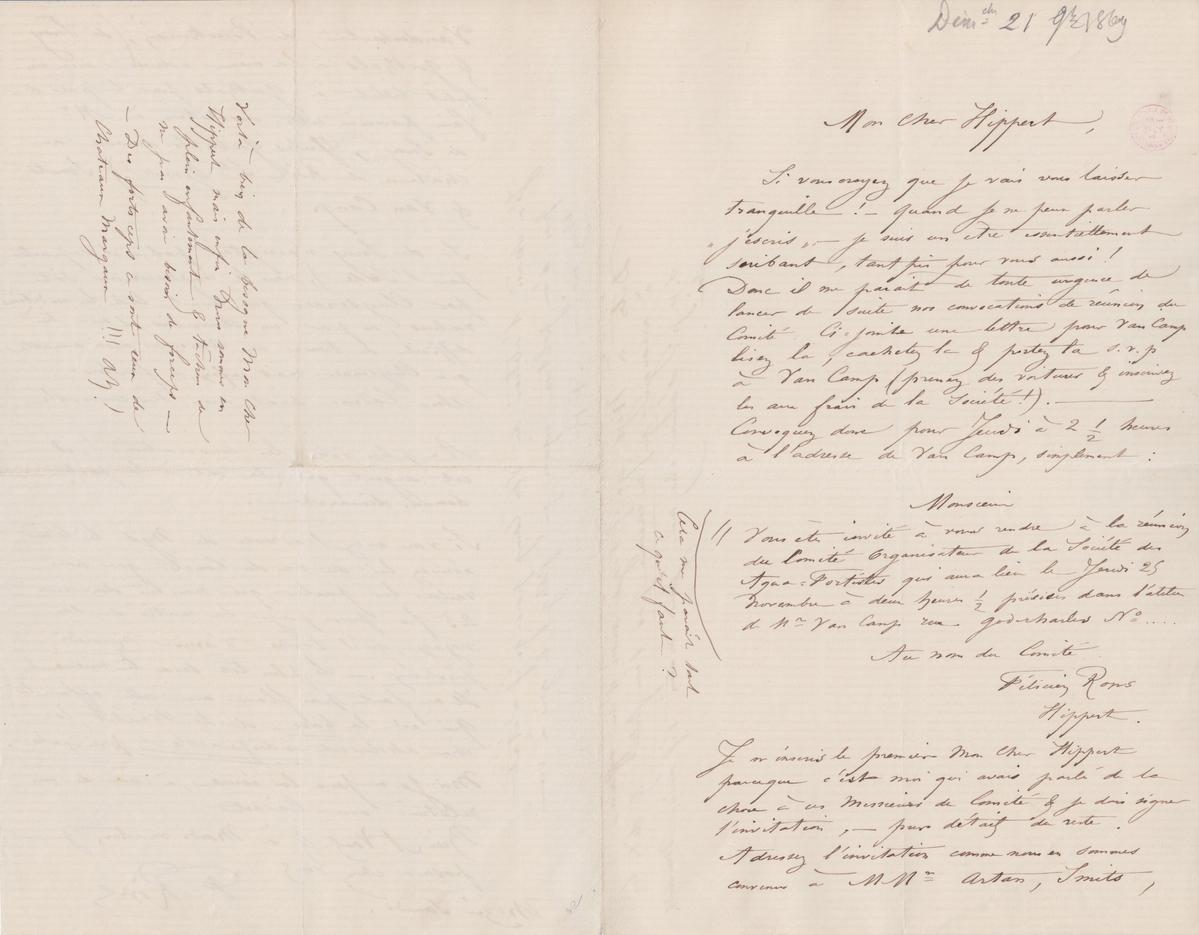 Dim^che 21 9^bre 1869
Mon Cher Hippert,
Si vous croyez que je vais vous laisser
tranquille ! – quand je ne peux parler
„ j'escris „ – je suis un être essentiellement
scribant, tant pis pour vous aussi !
Donc il me parait de toute urgence de
lancer de suite nos convocations de réunion du
Comité. Ci-jointe une lettre pour Van Camp
lisez la, cachetez la & portez la s.v.p
à Van Camp (prenez des voitures & inscrivez
les aux frais de la Société !). —
Convoquez donc pour Jeudi à 2 1/2 heures
à l'adresse de Van Camp, simplement :
Monsieur
Vous êtes invité à vous rendre à la réunion
du Comité Organisateur de la Société des
Aqua=Fortistes qui aura lieu le Jeudi 25
Novembre à deux heures 1/2 précises dans l'atelier
de M^r Van Camp rue Godecharles N^o ....
Au nom du Comité
Félicien Rops
Hippert.
Cela me parait tout
ce qu'il faut ?
Je m'inscris le premier Mon Cher Hippert
parceque c'est moi qui avais parlé de la
chose à ces Messieurs du Comité & je dois signer
l'invitation, – purs détails du reste.
Adressez l'invitation comme nous en sommes
convenus à MM^rs Artan, Smits,
Voilà bien de la besogne Mon Cher
Hippert mais enfin nous sommes en
plein enfantement & tâchons de
ne pas avoir besoin de forceps —
– Des forts ceps ce sont ceux de
Chateaux Margaux !!!